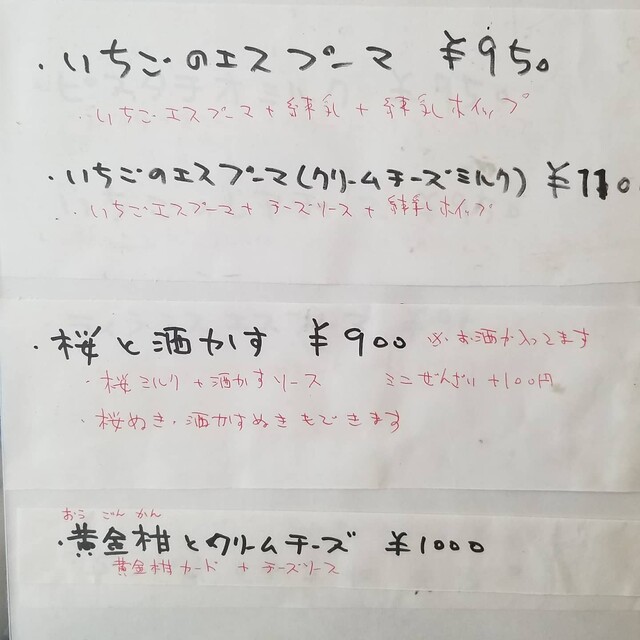 ・いちごのエスプーマ ¥950
・いちごエスプーマ+練乳+練乳ホイップ
・いちごのエスプーマ(クリームチーズミルク) ¥110
・いちごエスプーマ+チーズソース+練乳ホイップ
・桜と酒かす ¥900 ※お酒が入ってます
・桜ミルク+酒かすソース ミニぜんざい+100円
・桜ぬき・酒かすぬきもできます
おうごんかん
・黄金柑とクリームチーズ ¥1000
黄金柑カード+チーズソース